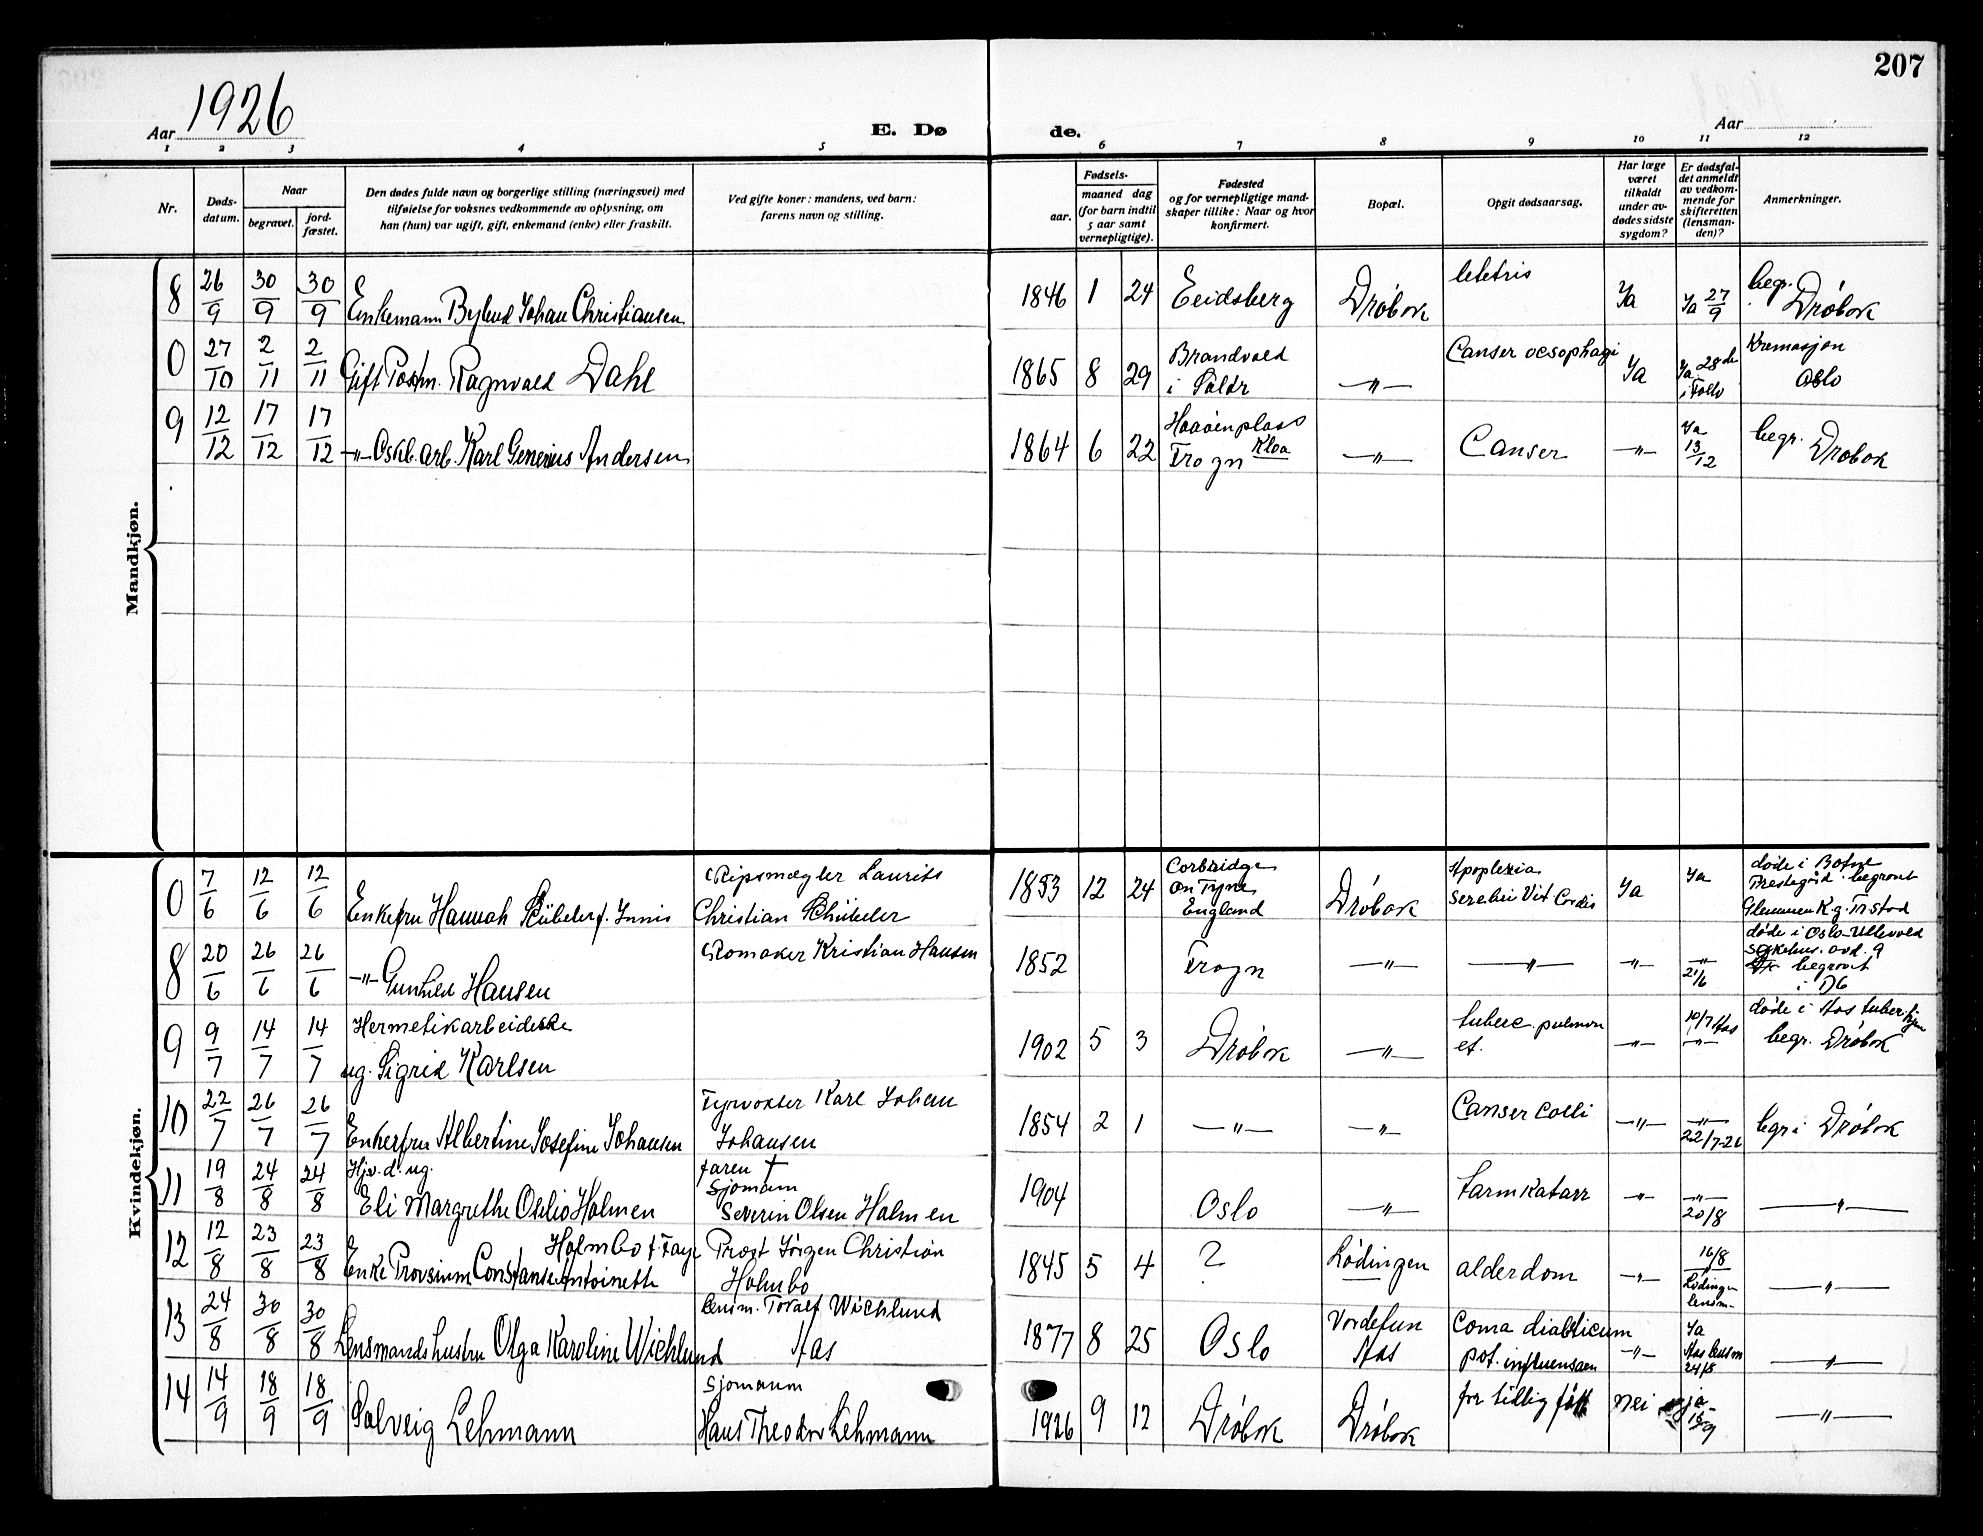 207
Aar 1926
E. Dø
de.
Aar
1 2 3 4 5 6 7 8 9 10 11 12
Nr.
Døds-
datum.
Naar
begravet.
jord-
fæstet.
Den dødes fulde navn og borgerlige stilling (næringsvei) med
tilføielse for voksnes vedkommende av oplysning, om
han (hun) var ugift, gift, enkemand (enke) eller fraskilt.
Ved gifte koner: mandens, ved barn:
farens navn og stilling.
Fødsels-
aar.
maaned dag
(for barn indtil
5 aar samt
vernepligtige).
Fødested
og for vernepligtige mand-
skaper tillike: Naar og hvor
konfirmert.
Bopæl.
Opgit dødsaarsag.
Har læge
været
tilkaldt
under av-
dødes sidste
sygdom?
Er dødsfal-
det anmeldt
av vedkom-
mende for
skifteretten
(lensman-
den)?
Anmerkninger.
Mandkjøn.
8 26/9 30/9 30/9 Enkemann Johan Christiansen 1846 1 24 Eeidsberg Drøbak Ja Ja 27/9 begr. Drøbak
0 27/10 2/11 2/11 Gift Postm. Ragnvald Dahl 1865 8 29 Brandvold
i Solør -"- Canser oesophagi Ja Ja 28de
i Follo Kremasjon
Oslo
9 12/12 17/12 17/12 -"- Oskb. arb. Karl Andersen 1864 6 22
Frogn Kloa -"- Canser -"- Ja
13/12 begr. Drøbak
Kvindekjøn.
0 7/6 12/6 12/6 Enkefru Hannah Schübeler f. Innis Skipsmægler Laurits
Christian Schübeler 1853 12 24 Corbridge
on Tyne
England Drøbak Apoplexia
Vit Cordis Ja Ja døde i
begravet
Glemmen K.g. Fr.stad
8 20/6 26/6 26/6 -"- Gunhild Hansen Kristian Hansen 1852 Frogn -"- -"- -"- -"-
21/6 døde i Oslo Ullevold
sykehus. avd. 9
begravet
i D6
9 9/7 14/7 14/7 Hermetikarbeiderske
ug. Sigrid Karlsen 1902 5 3 Drøbak -"- tuberc. pulmon
et. -"- 10/7 Aas
-"- døde i Aas tuber.hjem
begr. Drøbak
10 22/7 26/7 26/7 Enkefru Albertine Josefine Johansen Fyrvokter Karl Johan
Johansen 1854 2 1 -"- -"- Canser Colli -"- -"-
22/7-26 begr i Drøbak
11 19/8 24/8 24/8 Hjv. d. ug.
Eli Margrethe Holmen faren †
sjømann
Severin Olsen Holmen 1904 Oslo -"- Tarmkatarr -"- -"-
20/8 -"-
12 12/8 23/8 23/8 Holmbo f. Faye
Enke Provstinn Constanse Antoinette Prost Jørgen Christian
Holmbo 1845 5 4 ? Lødingen alderdom -"- 16/8
Lødingen
lensm. -"-
13 24/8 30/8 30/8 Lensmandshustru Olga Karoline Wichlund Lensm. Toralf Wichlund
Aas 1877 8 25 Oslo Vordefun
Aas Coma diabeticum
pot. influensaen -"- Ja
Aas lensm
24/8 -"-
14 14/9 18/9 18/9 Solveig Lehmann Sjømann
Hans Theodor Lehmann 1926 9 12 Drøbak Drøbak for tidlig født nei ja
15/9 -"-